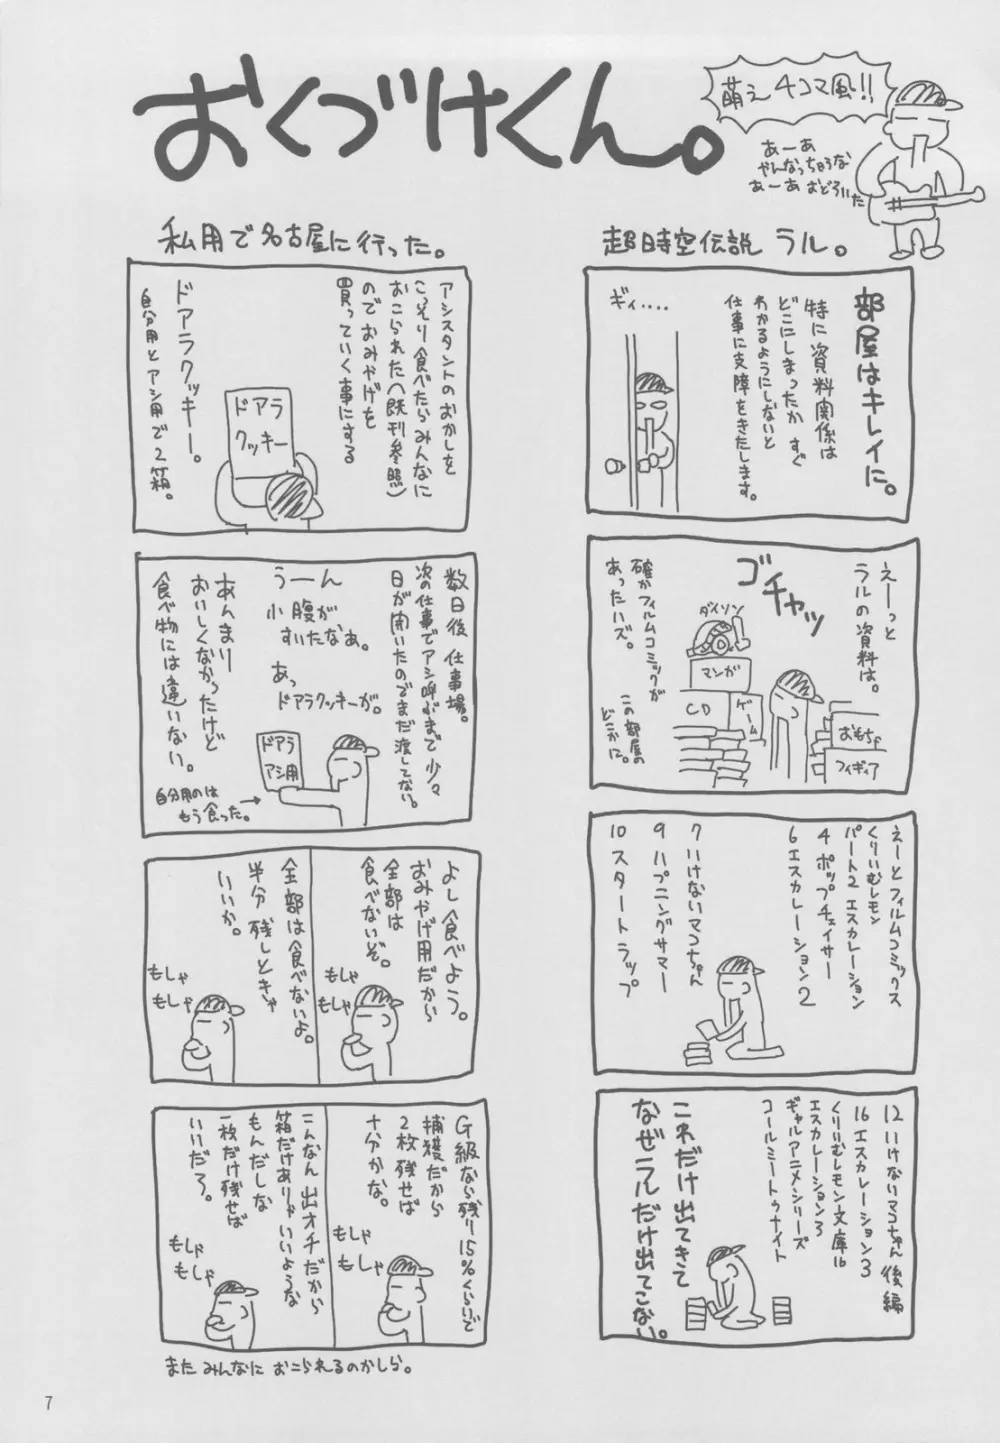 おくづけくん。
萌え4コマ風!!
あーあ
やんなっちゃうな
あーあ おどろいた
超時空伝説 ラル。
部屋はキレイに。
特に資料関係は
どこにしまったか すぐ
わかるようにしないと
仕事に支障をきたします。
ギィ....
えーっと
ラルの資料は。
ゴチャッ
ダイソン
マンガ
CD
ゲーム
おもちゃ
フィギィア
確かフィルムコミックが
あったハズ。
この部屋の
どこかに。
えーとフィルムコミックス
くりいむレモン
パート2 エスカレーション
4 ポップチェイサー
6 エスカレーション2
7 いけないマコちゃん
9 ハプニングサマー
10 スタートラップ
12 いけないマコちゃん 後編
16 エスカレーション3
くりいむレモン文庫16
エスカレーション3
ギャルアニメシリーズ
コールミートゥナイト
これだけ出てきて
なぜラルだけ出てこない。
私用で名古屋に行った。
アシスタントのおかしを
こっそり食べたらみんなに
おこられた(既刊参照)
ので おみやげを
買っていく事にする
ドアラ
クッキー
ドアラクッキー。
自分用とアシ用で2箱。
数日後 仕事場。
次の仕事でアシ呼ぶまで少々
日が開いたのでまだ渡してない。
うーん
小腹が
すいたなぁ。
あっ
ドアラクッキーが。
ドアラ
アシ用
あんまり
おいしくなかったけど
食べ物には違いない。
自分用のは
もう食った。→
よし食べよう。
おみやげ用だから
全部は
食べないぞ。
もしゃ
もしゃ
全部は食べないよ。
半分 残しときゃ
いいか。
もしゃ
もしゃ
G級なら残り15%くらいで
捕獲だから
2枚残せば
十分かな。
もしゃ
もしゃ
こんなん 出オチだから
箱だけありゃいいような
もんだしな
一枚だけ残せば
いいだろ。
もしゃ
もしゃ
また みんなに おこられるのかしら。
7